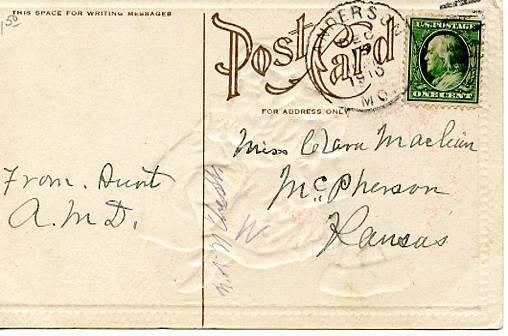 1.50
THIS SPACE FOR WRITING MESSAGES
Post Card
FOR ADDRESS ONLY
ANDERSON
DEC
1910
MO.
U.S. POSTAGE
ONE CENT
Miss Clara Maclean
McPherson
Kansas
From. Aunt
A.M.D.